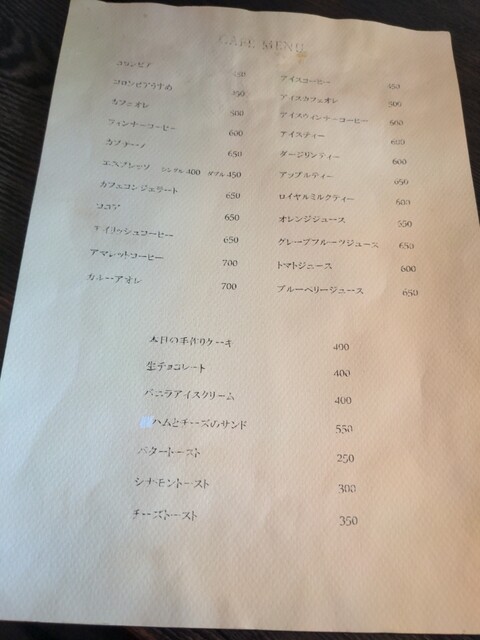 CAFE MENU
コロンビア
コロンビアうすめ
カフェオレ 500
ウィンナーコーヒー 600
カプチーノ 650
エスプレッソ シングル 400 ダブル 450
カフェコンジェラート 650
ココア 650
アイリッシュコーヒー 650
アマレットコーヒー 700
カルーアオレ 700
アイスコーヒー
アイスカフェオレ 500
アイスウィンナーコーヒー 600
アイスティー 600
ダージリンティー 600
アップルティー 650
ロイヤルミルクティー 600
オレンジジュース 550
グレープフルーツジュース 650
トマトジュース 600
ブルーベリージュース 650
本日の手作りケーキ 400
生チョコレート 400
バニラアイスクリーム 400
ハムとチーズのサンド 550
バタートースト 250
シナモントースト 300
チーズトースト 350